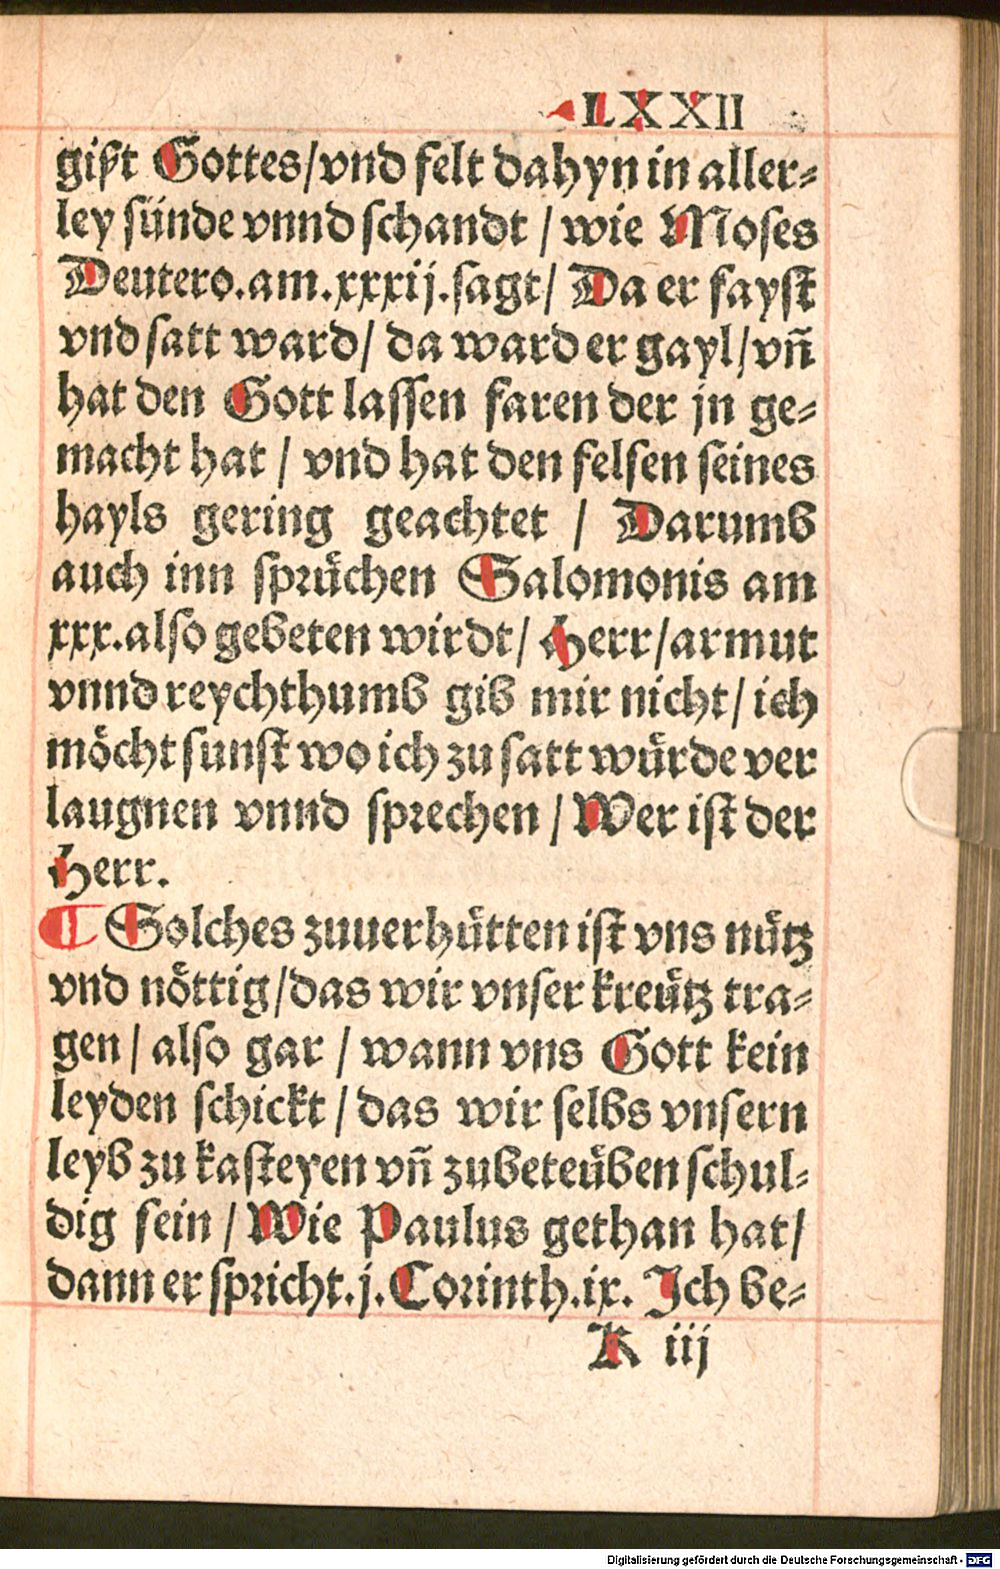 LXXII
gifft Gottes/vnd felt dahyn in aller⸗
ley sünde vnnd schandt / wie Moses
Deutero.am.xxxij.sagt/ Da er fayst
vnd satt ward/ da ward er gayl/vñ
hat den Gott lassen faren der jn ge⸗
macht hat / vnd hat den felsen seines
hayls gering geachtet / Darumb
auch inn sprüchen Salomonis am
xxx.also gebeten wirdt/ Herr/armut
vnnd reychthumb gib mir nicht/ ich
möcht sunst wo ich zu satt würde ver
laugnen vnnd sprechen / Wer ist der
Herr.
¶ Solches zuuerhütten ist vns nütz
vnd nöttig/das wir vnser kreütz tra⸗
gen / also gar / wann vns Gott kein
leyden schickt / das wir selbs vnsern
leyb zu kasteyen vñ zubeteüben schul⸗
dig sein / Wie Paulus gethan hat/
dann er spricht.j.Corinth.ix. Ich be⸗
K iij
Digitalisierung gefördert durch die Deutsche Forschungsgemeinschaft - DFG